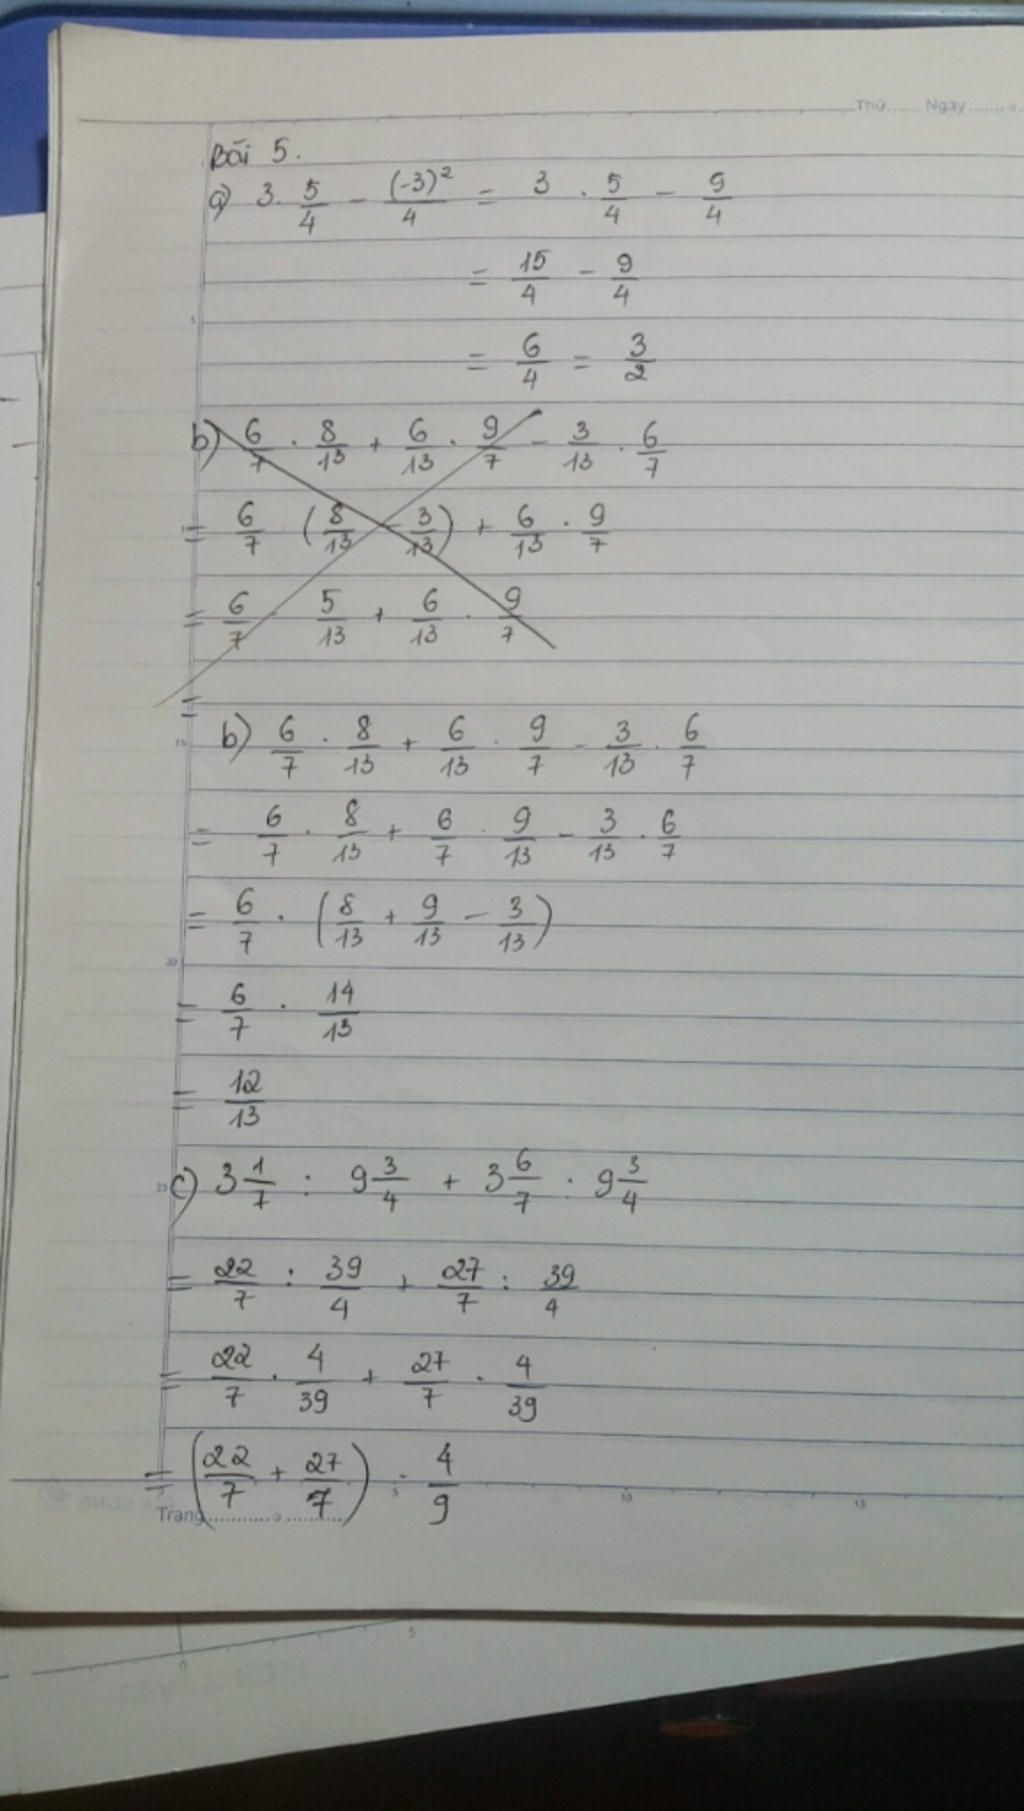 Thứ...... Ngày.......
Bài 5.
a) 3 . 5/4 - (-3)²/4 = 3 . 5/4 - 9/4
= 15/4 - 9/4
= 6/4 = 3/2
b) 6/7 . 8/13 + 6/13 . 9/7 - 3/13 . 6/7
= 6/7 (8/13 - 3/13) + 6/13 . 9/7
= 6/7 5/13 + 6/13 . 9/7
=
b) 6/7 . 8/13 + 6/13 . 9/7 - 3/13 . 6/7
= 6/7 . 8/13 + 6/7 . 9/13 - 3/13 . 6/7
= 6/7 . (8/13 + 9/13 - 3/13)
= 6/7 . 14/13
= 12/13
c) 3 1/7 : 9 3/4 + 3 6/7 : 9 3/4
= 22/7 : 39/4 + 27/7 : 39/4
= 22/7 . 4/39 + 27/7 . 4/39
= (22/7 + 27/7) . 4/9
Trang